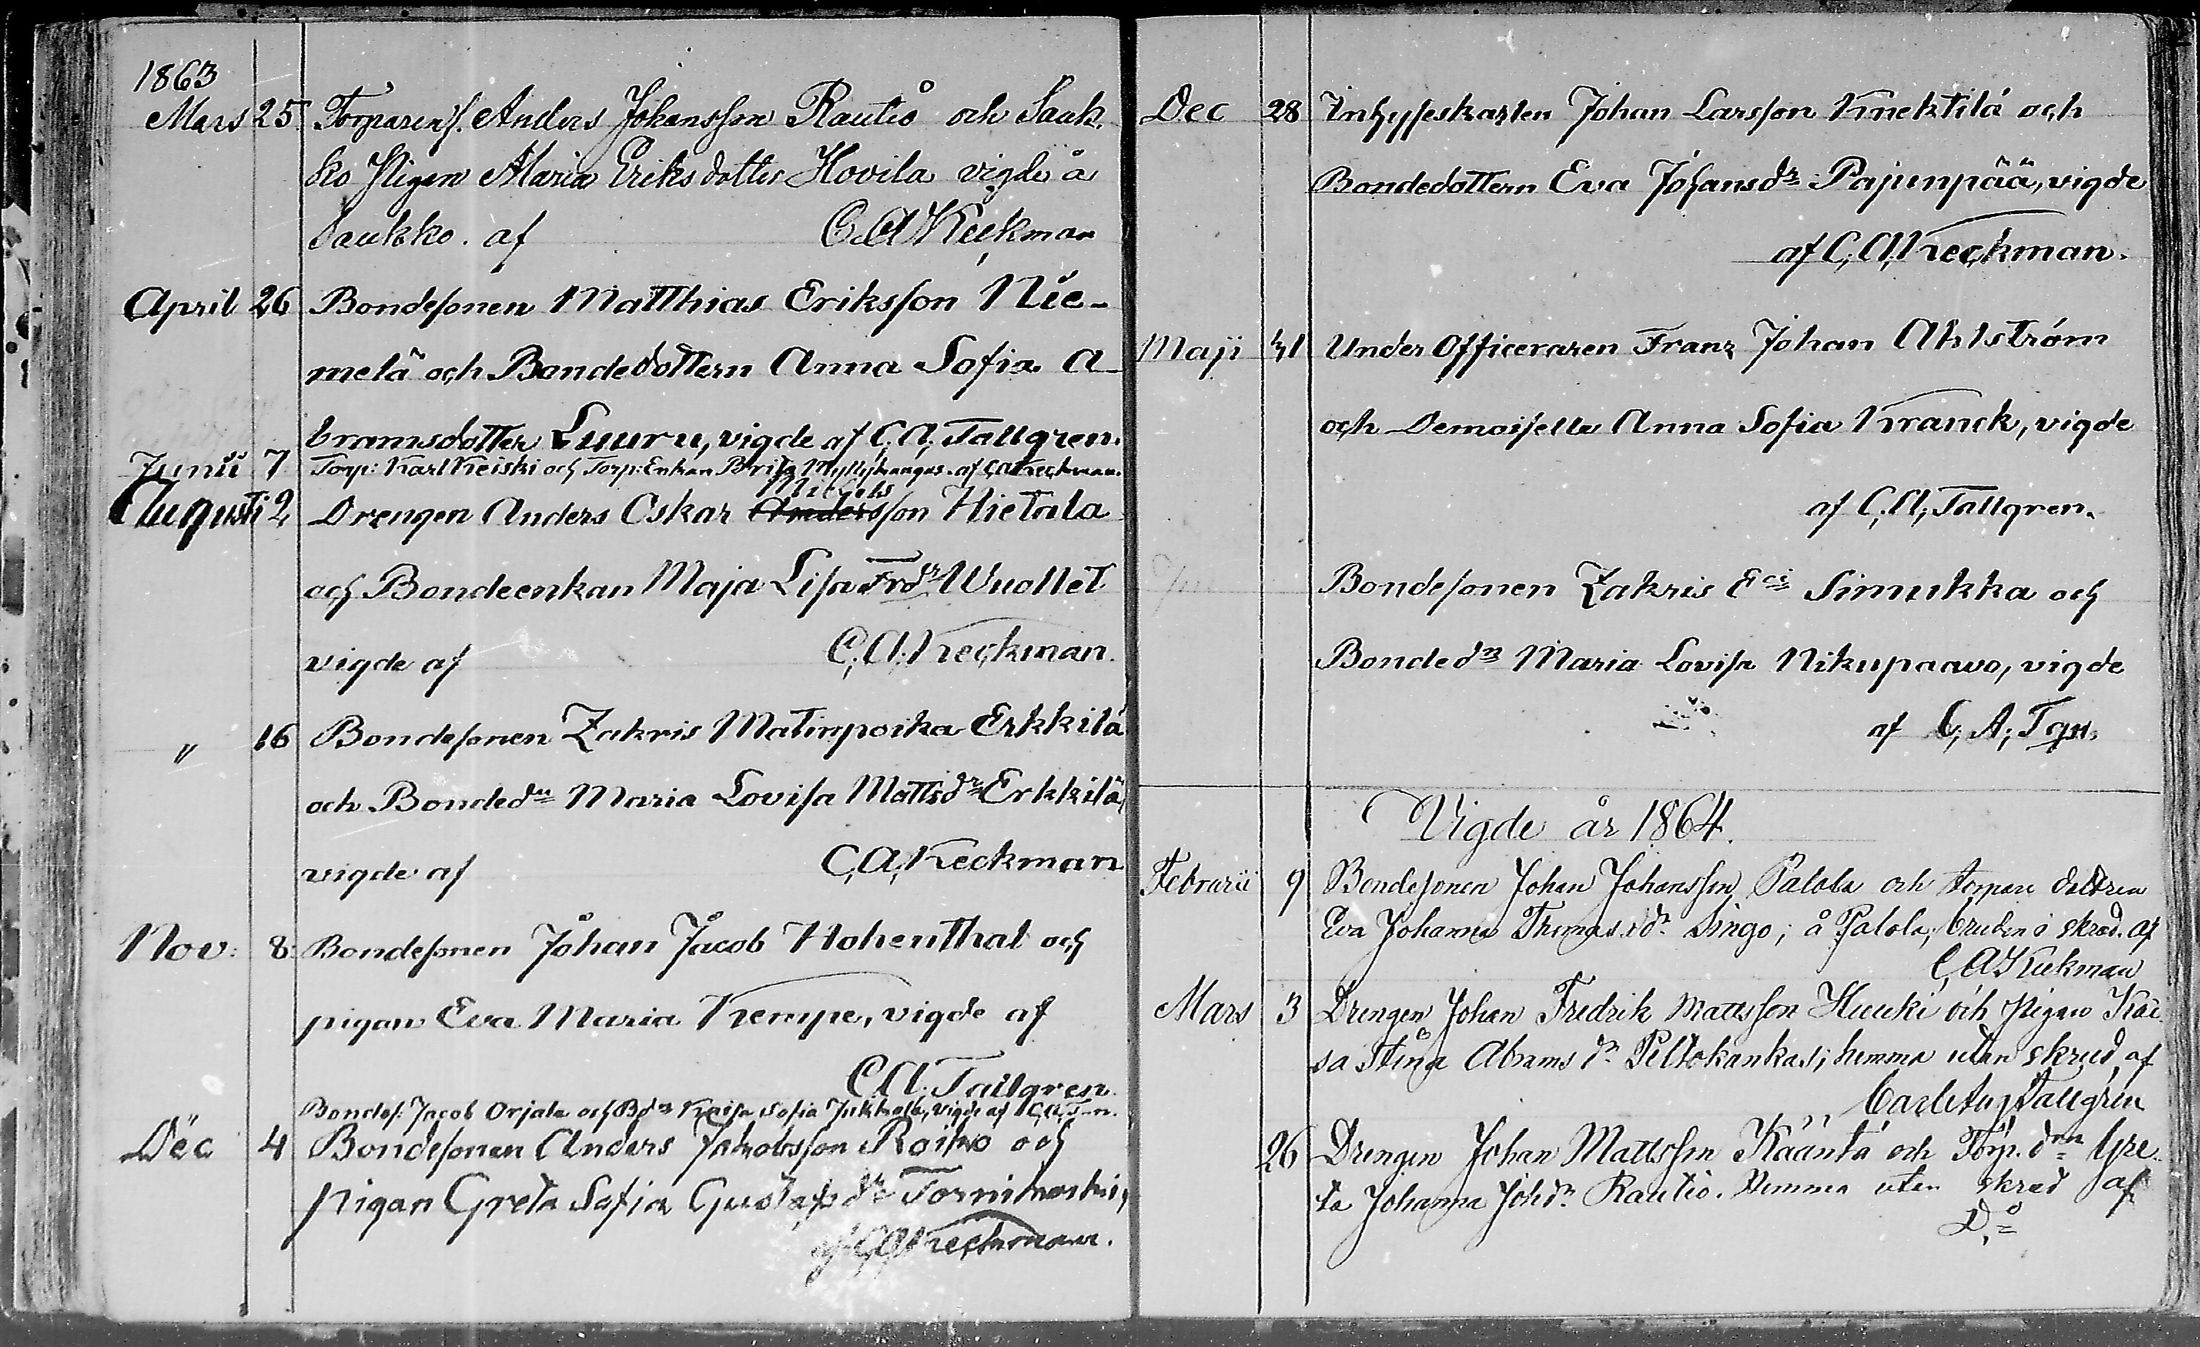 1863
Mars 25. Torparens. Anders Johansson Rautio och Sauk-
ko Pigan Maria Eriksdotter Hovila vigde å
Saukko. af C. A. Keckman
April 26 Bondesonen Matthias Eriksson Nie-
melä och Bondedottern Anna Sofia A-
bramsdotter Luuru, vigde af C. A. Tallgren.
Junii 7 Torp: Karl Keiski och Torp: Enkan Brita Myllykangas. af C. A. Keckman.
Michels
Augusti 2 Drengen Anders Oskar Andersson Hietala
och Bondeenkan Maja Lisa Frdr Wuollet
vigde af C. A. Keckman.
" 16 Bondesonen Zakris Matinpoika Erkkilä
och Bondedn Maria Lovisa Mattsdr Erkkilä,
vigde af C. A. Keckman
Nov: 8: Bondesonen Johan Jacob Hohenthal och
pigan Eva Maria Kempe, vigde af
C. A. Tallgren.
Bondes: Jacob Orjala och Bdn Kaisa Sofia vigde af C. A. T-n.
Dec 4 Bondesonen Anders Jakobsson Roiko och
Pigan Greta Sofia Gustafsdr Tornikoski,
af C. A. Keckman.
Dec 28 Inhyseskarlen Johan Larsson Knektilä och
Bondedottern Eva Johansdr Pajunpää, vigde
af C. A. Keckman.
Maji 31 Under Officeraren Franz Johan Ahlström
och Demoiselle Anna Sofia Kranck, vigde
af C. A. Tallgren.
Bondesonen Zakris Eci Simukka och
Bondedn Maria Lovisa Nikupaavo, vigde
af C. A. Tgn.
Vigde år 1864.
Februarii 9 Bondesonen Johan Johansson Palola och torpare dottren
Eva Johanna Thomasdr Singo; å Palola, bruden i skrud. af
C. A. Keckman
Mars 3 Drengen Johan Fredrik Mattsson Huuki och pigan Kai-
sa Stina Abramsdr Peltokankas; hemma utan skrud, af
Carl Aug Tallgren
26 Drengen Johan Mattsson Kääntä och Torp. drn Gre-
ta Johanna Johdr Rautio. Hemma utan skrud af
Do